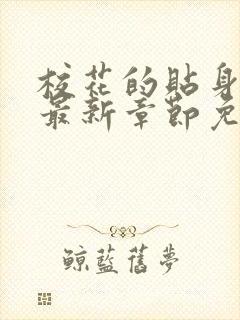 校花的贴身
最新章节免
鲸蓝旧梦